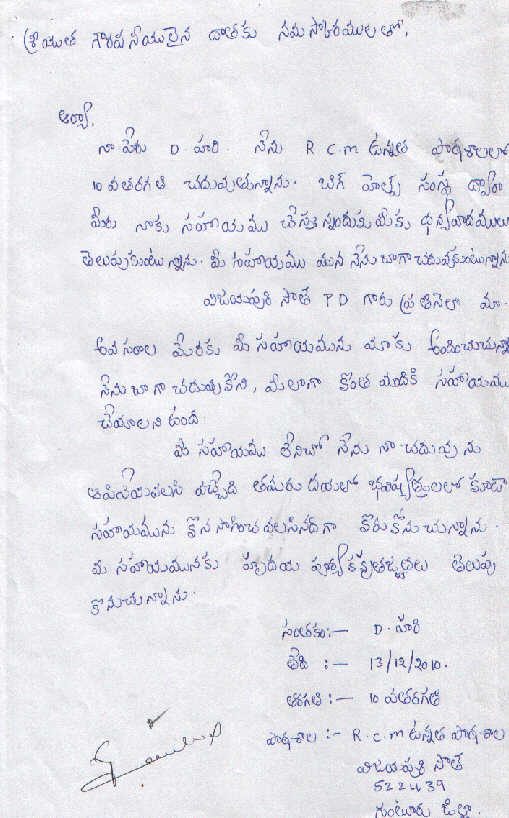 శ్రీయుత గౌరవనీయులైన దాతకు నమస్కారములతో,
ఆర్యా,
నా పేరు D. హరి. నేను R C M ఉన్నత పాఠశాలలో
10వతరగతి చదువుతున్నాను. బిగ్ హెల్ప్ సంస్థ ద్వారా
మీరు నాకు సహాయము చేస్తున్నందుకు మీకు ధన్యవాదములు
తెలుపుకుంటున్నాను. మీ సహాయము వలన నేను బాగా చదువుకుంటున్నాను
విజయపురి సౌత్ PD గారు ప్రతినెలా మా
అవసరాల మేరకు మీ సహాయమును మాకు అందించుచున్నారు
నేను బాగా చదువుకొని, మీలాగా కొంత మందికి సహాయము
చేయాలని ఉంది
మీ సహాయము లేనిచో నేను నా చదువును
ఆపివేయవలసి వచ్చేది తమరు దయతో భవిష్యత్తులలో కూడా
సహాయమును కొనసాగించవలసినదిగా కోరుకొనుచున్నాను.
మీ సహాయమునకు హృదయ పూర్వక కృతజ్ఞతలు తెలుపు
కొనుచున్నాను.
సంతకం:- D. హరి
తేది :- 13/12/2010.
తరగతి :- 10 వతరగతి
పాఠశాల :- R.C.M ఉన్నత పాఠశాల
విజయపురి సౌత్
522439
గుంటూరు జిల్లా.